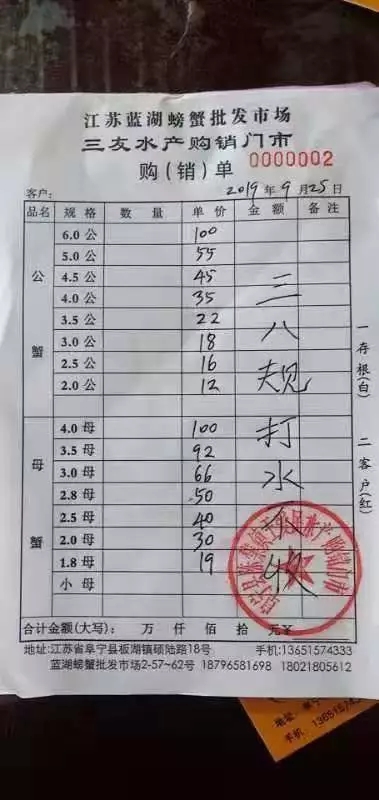 江苏蓝湖螃蟹批发市场
三友水产购销门市
购(销)单 0000002
客户: 2019年9月25日
品名 规格 数量 单价 金额 备注
公蟹
6.0公 100
5.0公 55
4.5公 45
4.0公 35
3.5公 22
3.0公 18
2.5公 16
2.0公 12
母蟹
4.0母 100
3.5母 92
3.0母 66
2.8母 50
2.5母 40
2.0母 30
1.8母 19
小母
三八规打水
一存根(白) 二客户(红)
合计金额(大写): 万 仟 佰 拾 元¥
地址:江苏省阜宁县板湖镇硕陆路18号 手机:13651574333
蓝湖螃蟹批发市场2-57~62号 18796581698 18021805612
地址:阜宁
手机:136515743